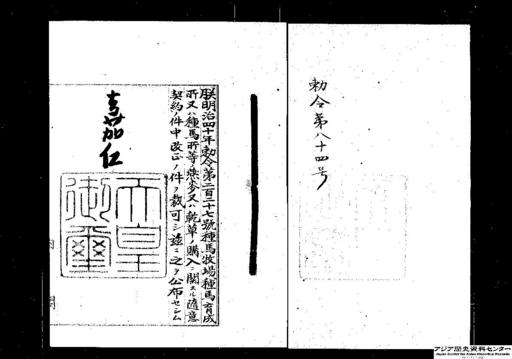 勅令第八十四号
朕明治四十年勅令第二百二十七號種馬牧場種馬育成
所又ハ種馬所等燕麥又ハ乾草ノ購入ニ關スル隨意
契約ノ件中改正ノ件ヲ裁可シ茲ニ之ヲ公布セシム
嘉仁
天皇
御璽
アジア歴史資料センター
Japan Center for Asian Historical Records